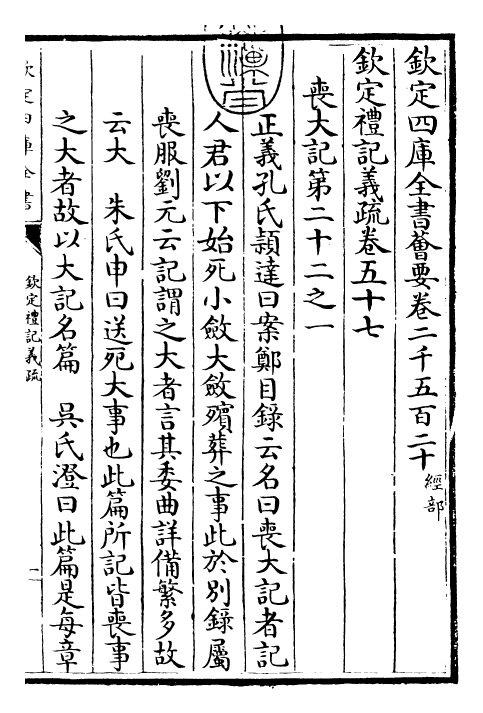 欽定四庫全書薈要卷二千五百二十 經部
欽定禮記義疏卷五十七
喪大記第二十二之一
正義孔氏頴達曰案鄭目錄云名曰喪大記者記
人君以下始死小斂大斂殯葬之事此於別錄屬
喪服劉元云記謂之大者言其委曲詳備繁多故
云大 朱氏申曰送死大事也此篇所記皆喪事
之大者故以大記名篇 吳氏澄曰此篇是每章
欽定四庫全書
欽定禮記義疏